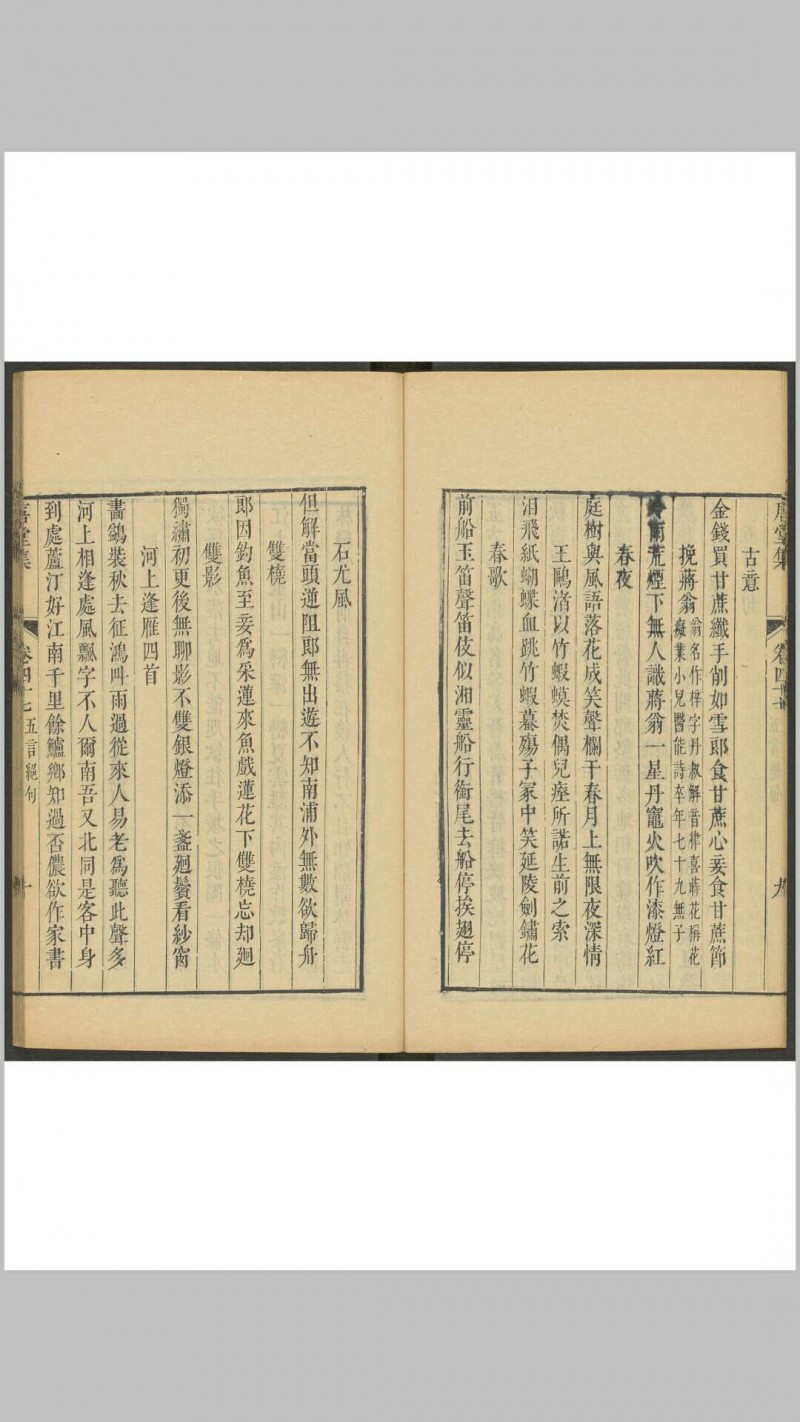 古意
金錢買甘蔗纖手削如雪郎食甘蔗心妾食甘蔗節
挽蔣翁 翁名作梓字丹叔解音律喜蒔花稱花
癡業小兒醫能詩卒年七十九無子
冷雨荒煙下無人識蔣翁一星丹竈火吹作漆燈紅
春夜
庭樹與風語落花成笑聲欄干春月上無限夜深情
王鷗渚以竹蝦蟆焚偶兒瘞所諾生前之索
泪飛紙蝴蝶血跳竹蝦蟇殤子冢中笑延陵劍鏽花
春歌
前船玉笛聲笛伎似湘靈船行銜尾去船停挨翅停
石尤風
但解當頭逆阻郎無出遊不知南浦外無數欲歸舟
雙橈
郎因釣魚至妾爲采蓮來魚戲蓮花下雙橈忘却迴
雙影
獨繡初更後無聊影不雙銀燈添一盞迴鬢看紗窗
河上逢雁四首
畫鷁裝秋去征鴻叫雨過從來人易老爲聽此聲多
河上相逢處風飄字不人爾南吾又北同是客中身
到處蘆汀好江南千里餘鱸鄉知過否儂欲作家書
卷四十七 五言絕句 十